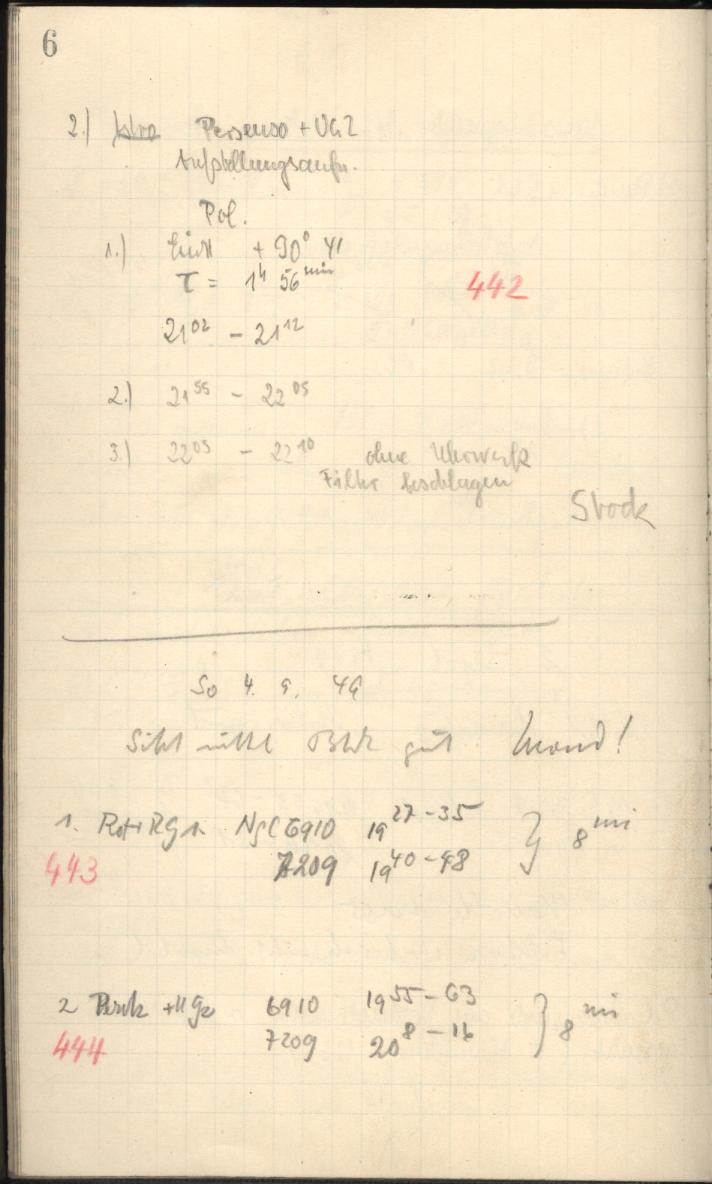 6
2.) Astro Persenso + UG2
Aufstellungsaufn.
Pol.
1.) Einst + 90° 41
τ = 1h 56min
442
21 02 – 21 12
2.) 21 55 – 22 05
3.) 22 05 – 22 10 ohne Uhrwerk
Filter beschlagen
Stock
So 4. 9. 49
Sicht gut Mond!
1. Rot+RG1. NGC 6910 19 27–35 } 8 min
443 7209 19 40–48
2 6910 19 55–63 } 8 min
444 7209 20 8–16